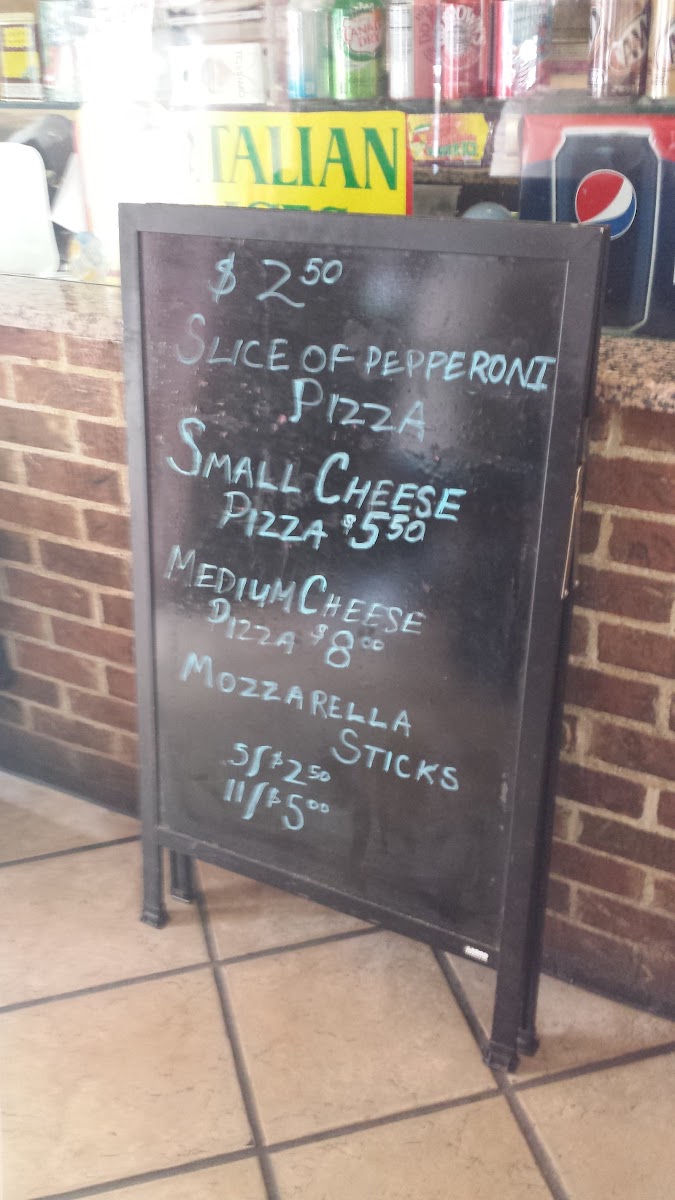 ITALIAN
$2.50
SLICE OF PEPPERONI
PIZZA
SMALL CHEESE
PIZZA $5.50
MEDIUM CHEESE
PIZZA $8.00
MOZZARELLA
STICKS
5/$2.50
11/$5.00